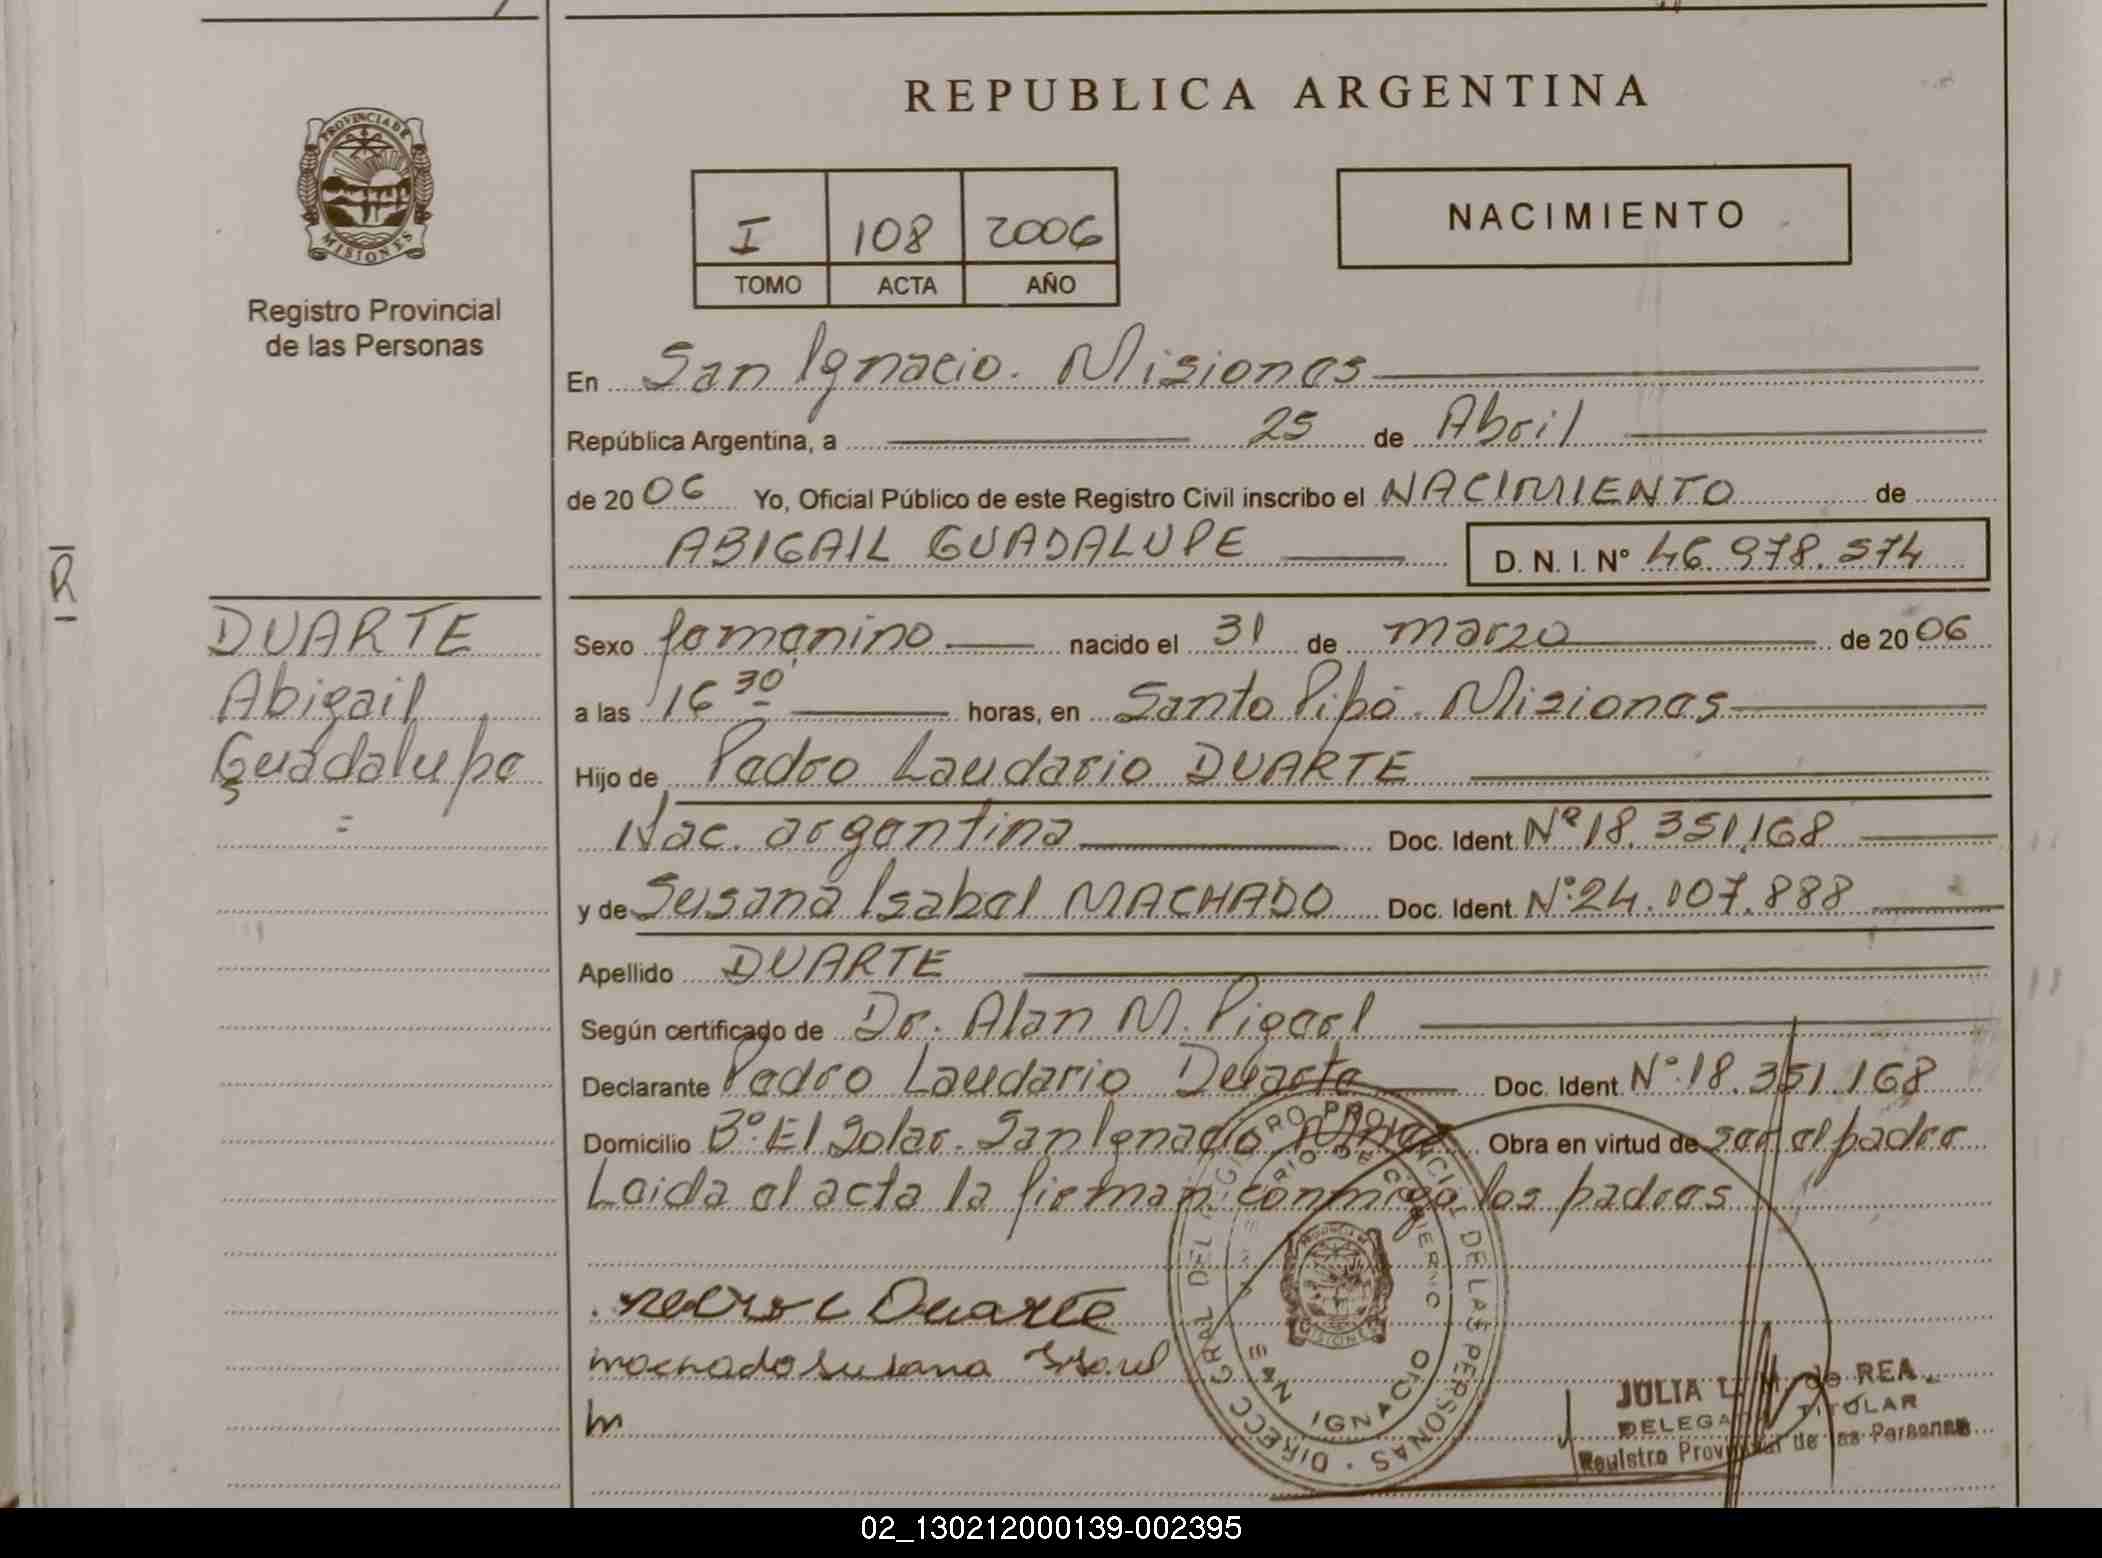 REPUBLICA ARGENTINA
PROVINCIA DE
MISIONES
Registro Provincial
de las Personas
I 108 2006
TOMO ACTA AÑO
NACIMIENTO
En San Ignacio. Misiones
República Argentina, a 25 de Abril
de 2006 Yo, Oficial Público de este Registro Civil inscribo el NACIMIENTO de
ABIGAIL GUADALUPE D. N. I. N° 46.978.574
R
DUARTE
Abigail
Guadalupe
Sexo femenino nacido el 31 de marzo de 2006
a las 16 30 horas, en Santo Pipó. Misiones
Hijo de Pedro Laudario DUARTE
Nac. argentina Doc. Ident. Nº 18.351.168
y de Susana Isabel MACHADO Doc. Ident. Nº 24.007.888
Apellido DUARTE
Según certificado de Dr. Alan M.
Declarante Pedro Laudario Duarte Doc. Ident. Nº 18.351.168
Domicilio Bº El Solar. San Ignacio Obra en virtud de ser el padre
Leida el acta la firman conmigo los padres
Duarte
machado susana Isabel
m
DIRECC GRAL DEL REGISTRO PROVINCIAL DE LAS PERSONAS
SAN IGNACIO
MISIONES
JULIA L. M. de REA
DELEGADA TITULAR
Registro Provincial de las Personas
02_130212000139-002395